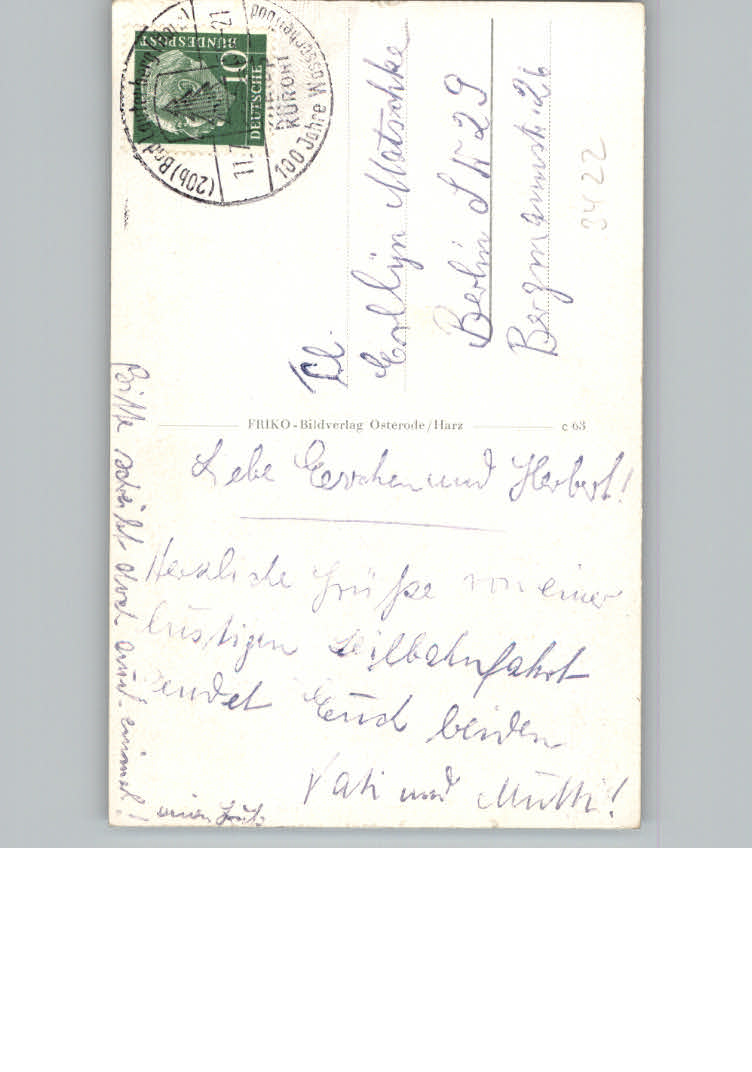 10
DEUTSCHE
BUNDESPOST
(20b) Bad
11.7
-21
KURORT
100 Jahre Wasserheilbad
Frl.
Matschke
Berlin SW 29
Bergmannstr. 26
3422
FRIKO-Bildverlag Osterode/Harz
c 63
Liebe Evchen und Herbert!
Herzliche Grüße von einer
lustigen Seilbahnfahrt
sendet Euch beiden
Vati und Mutti!
Bitte schreibt doch auch einmal!
einen Gruß